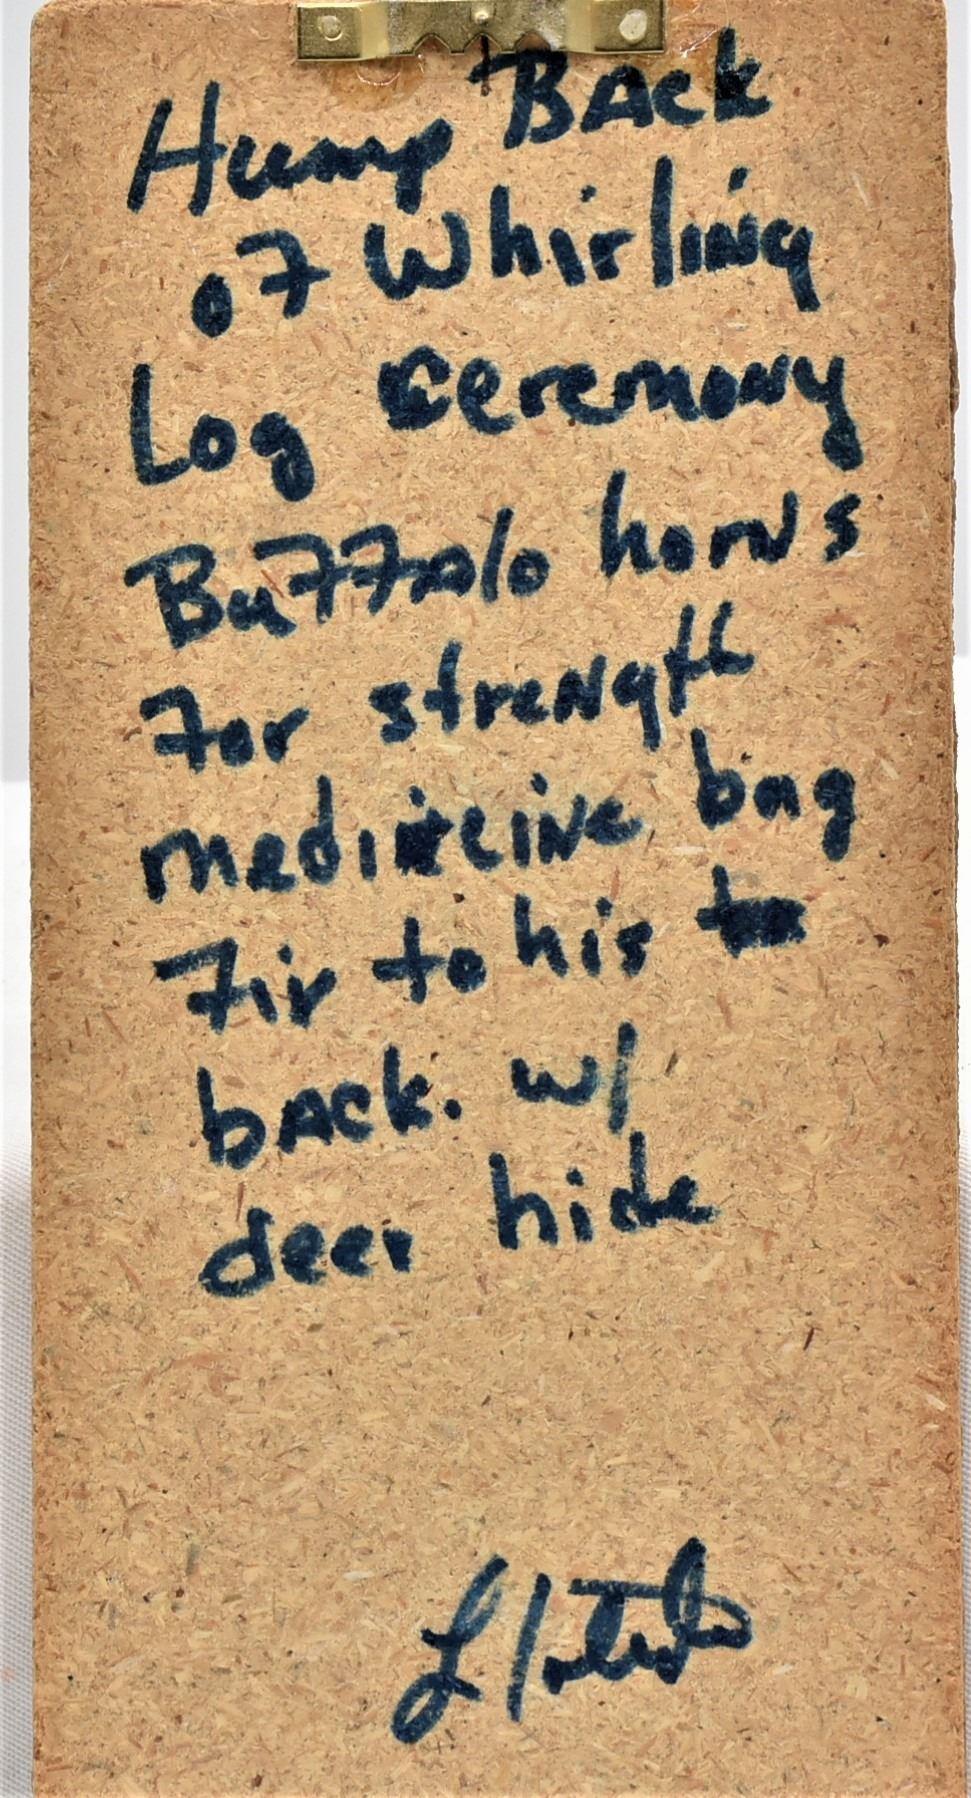 Hump Back
of Whirling
Log Ceremony
Buffalo horns
for strength
medicine bag
to his
back. w/
deer hide